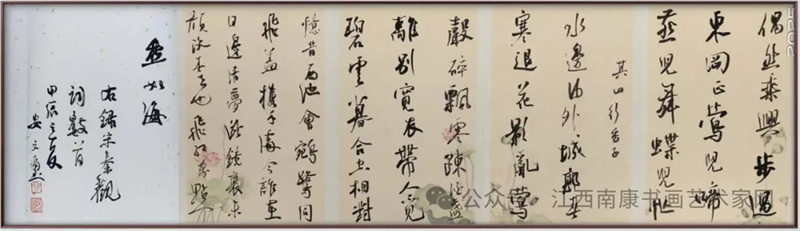 偶然乘興步過
東岡正鶯兒啼
燕兒舞蝶兒忙
其四行香子
水邊沙外城郭春
寒退花影亂鶯
聲碎飄零疎酒盞
離別寬衣帶人
碧雲暮合空相對
憶昔西池會鵷鷺同
飛蓋攜手處今誰在
日邊清夢斷鏡裏朱
顏改春去也飛紅萬點
愁如海
右錄宋秦觀
詞數首
甲辰之夏
公众号 · 江西南康书画艺术家
2025